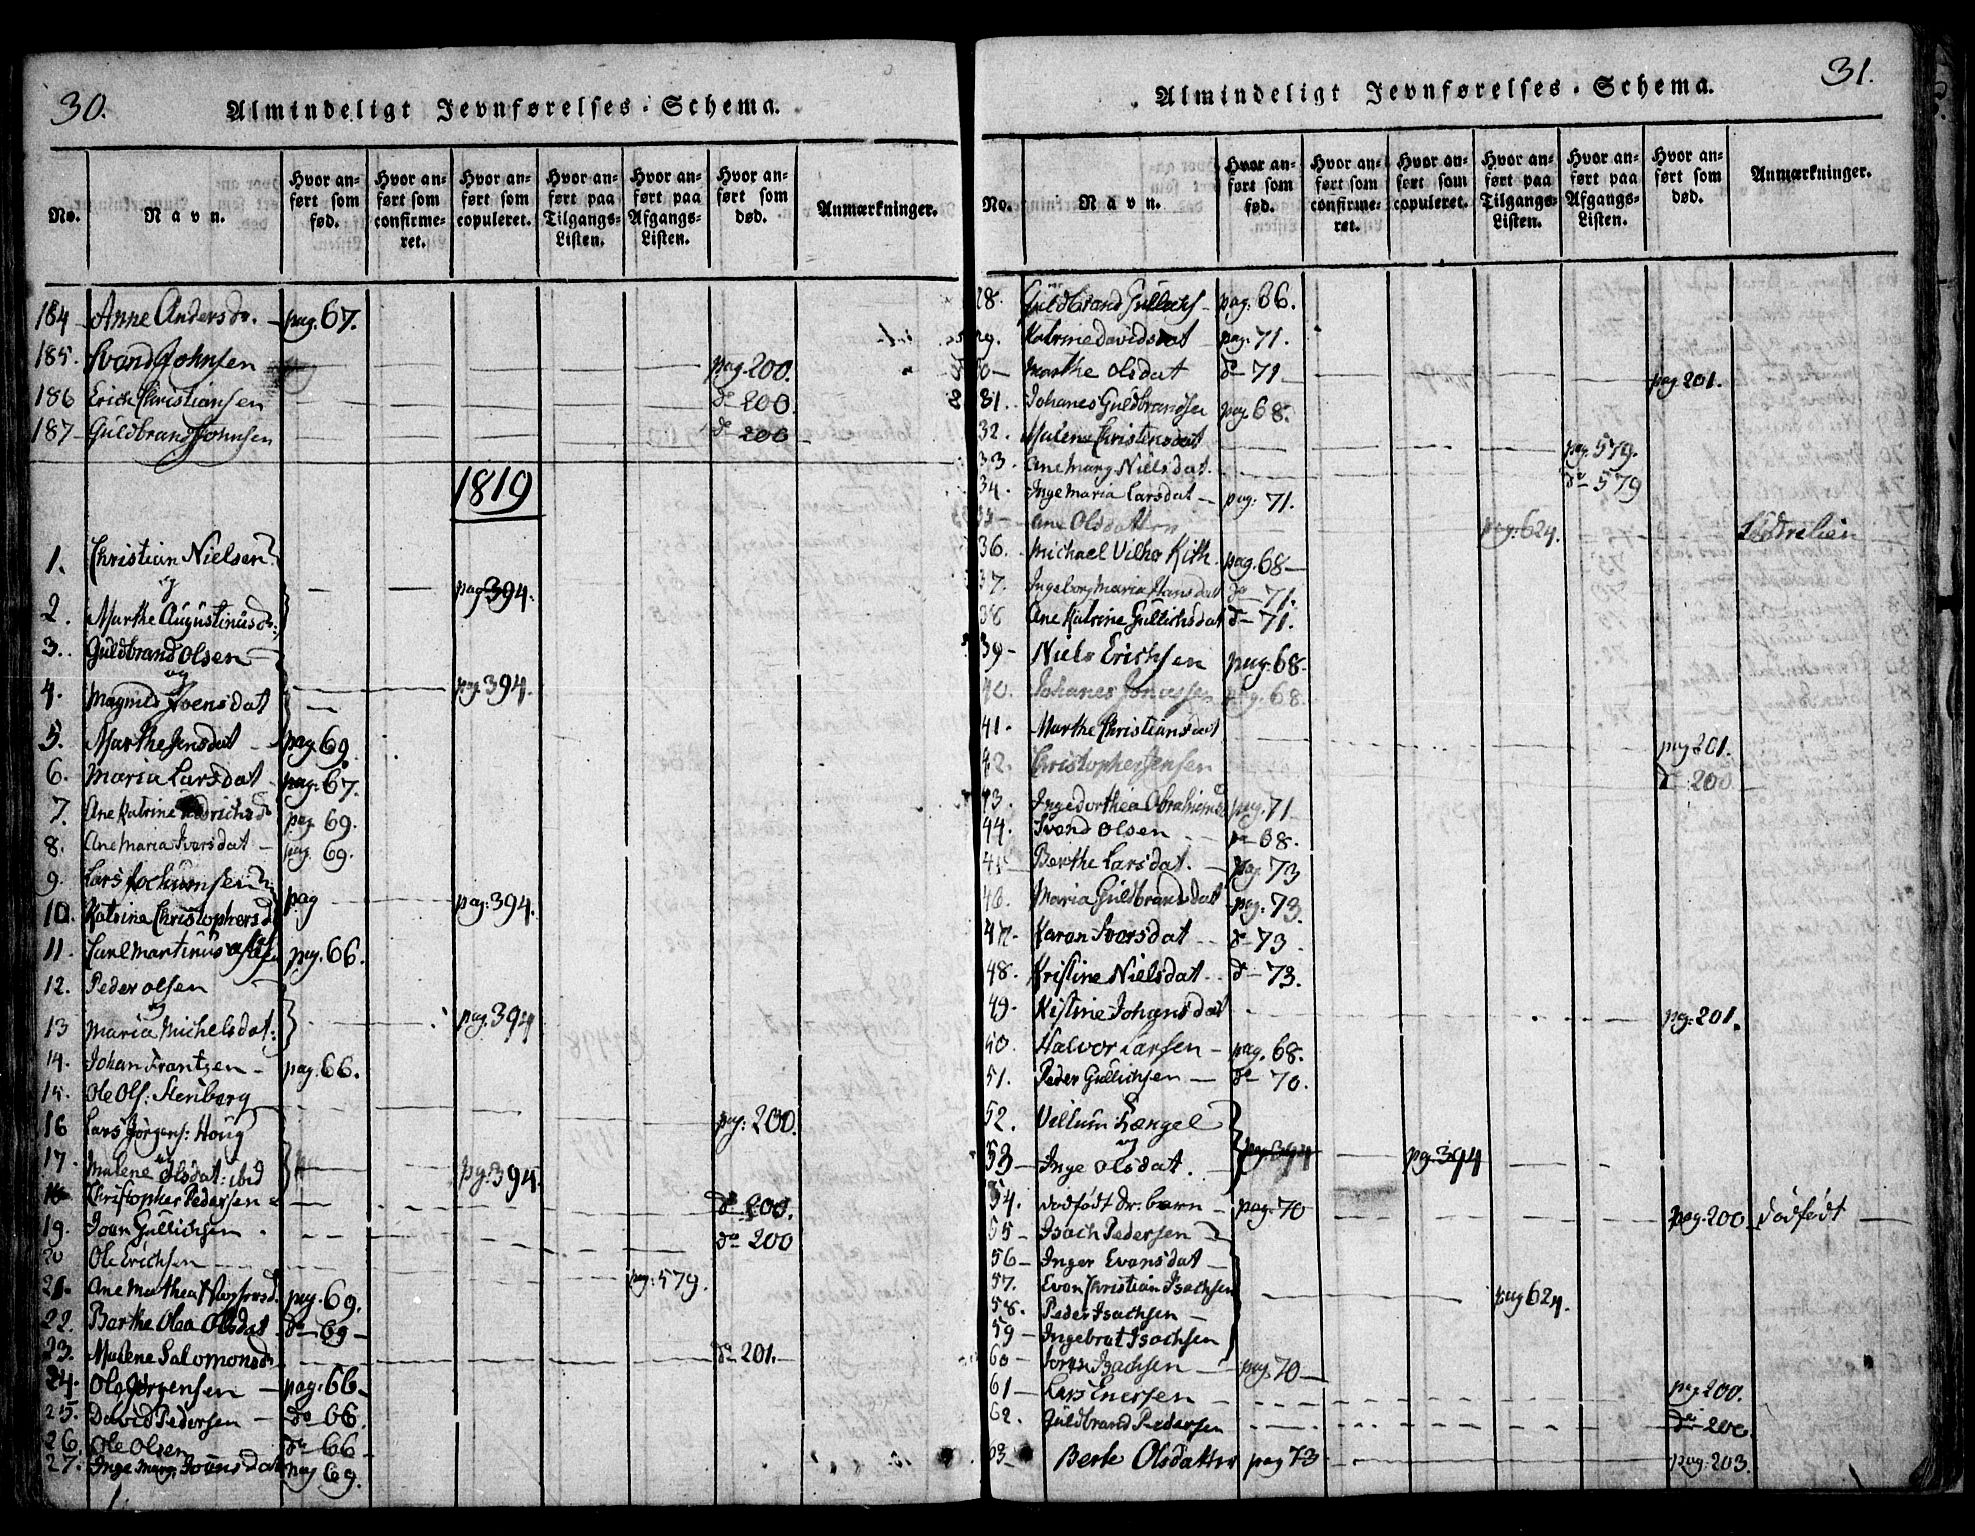 30.
Almindeligt Jevnførelses-Schema.
No. Navn. Hvor anført som fød. Hvor anført som confirmeret. Hvor anført som copuleret. Hvor anført paa Tilgangs-Listen. Hvor anført paa Afgangs-Listen. Hvor anført som død. Anmærkninger.
184 Anne Andersdr. pag. 67.
185. Svend Johnsen pag. 200.
186 Erich Christiansen do 200
187 Guldbrand Johnsen do 200
1819
1. Christian Nielsen
og pag 394.
2. Marthe Augustinusdr:
3. Guldbrand Olsen
og pag. 394.
4. Magnild Joensdat
5. Marthe Jensdat pag. 69
6. Maria Larsdat pag. 67.
7. Ane Katrine pag 69.
8. Ane Maria Iversdat pag. 69.
9. Lars
pag pag. 394.
10. Katrine Christophersd
11. Carl Martinus pag. 66.
12. Peder Olsen
og pag. 394
13 Maria Michelsdat:
14. Johan Frantzen pag. 66.
15. Ole Ols: Stenberg
16 Lars Jørgens: Houg pag: 200.
og pag. 394.
17. Malene Olsdat: ibid
18 Christopher Pedersen do 200.
19. Joan Gullichsen do 200
20 Ole Erichsen pag: 579.
21. Ane Mathea pag. 69.
22. Berthe Olea Olsdat do 69
23. Malene Salomonsd. do 201.
24. Ole Jørgensen pag: 66
25. David Pedersen do 66.
26. Ole Olsen do 66
27. Inge Marg. Joensdat pag 69.
31.
Almindeligt Jevnførelses-Schema.
No. Navn. Hvor anført som fød. Hvor anført som confirmeret. Hvor anført som copuleret. Hvor anført paa Tilgangs-Listen. Hvor anført paa Afgangs-Listen. Hvor anført som død. Anmærkninger.
28. Guldbrand pag: 66.
29. Katrine Davidsdat pag. 71.
30 Marthe Olsdat do 71 pag. 201.
31. Johanes Guldbrandsen pag. 68.
32. Malene Christensdat pag. 579.
33. Ane Marg Nielsdat. do 579
34. Inge Maria Larsdat pag. 71.
35 Ane Olsdatter pag. 624.
36. Michael Vilhe Kith. pag. 68
37. Ingeborg Maria Hansdat do 71.
38 Ane Katrine Gullichsdat do 71.
39 Niels Erichsen pag. 68.
40. Johanes Jonassen pag. 68.
41. Marthe Christiansdat pag 201.
42. Christopher Jensen do 200
43. Inge Dorthea pag. 71
44. Svend Olsen do 68.
45 Berthe Larsdat. pag. 73
46. Maria Guldbransdat pag. 73.
47. Karen Iversdat do 73
48. Kristine Nielsdat do 73.
49. Kistine Johansdat pag: 201.
50. Halvor Larsen pag. 68.
51. Peder Gullichsen do 70.
52. Villum Længel
og pag 394 pag. 394
53 Inge Olsdat.
54. dødfødt dr. barn pag. 70 pag. 200 Dødfødt
55 Isach Pedersen
56 Inger Evansdat
57. Even Christian Isachsen pag 624.
58. Peder Isachsen
59 Ingebrat Isachsen
60 Isachsen pag. 70
61 Lars Enersen pag 200.
62. Guldbrand Pedersen do 200.
63 Berte Olsdatter pag 73 pag. 203.